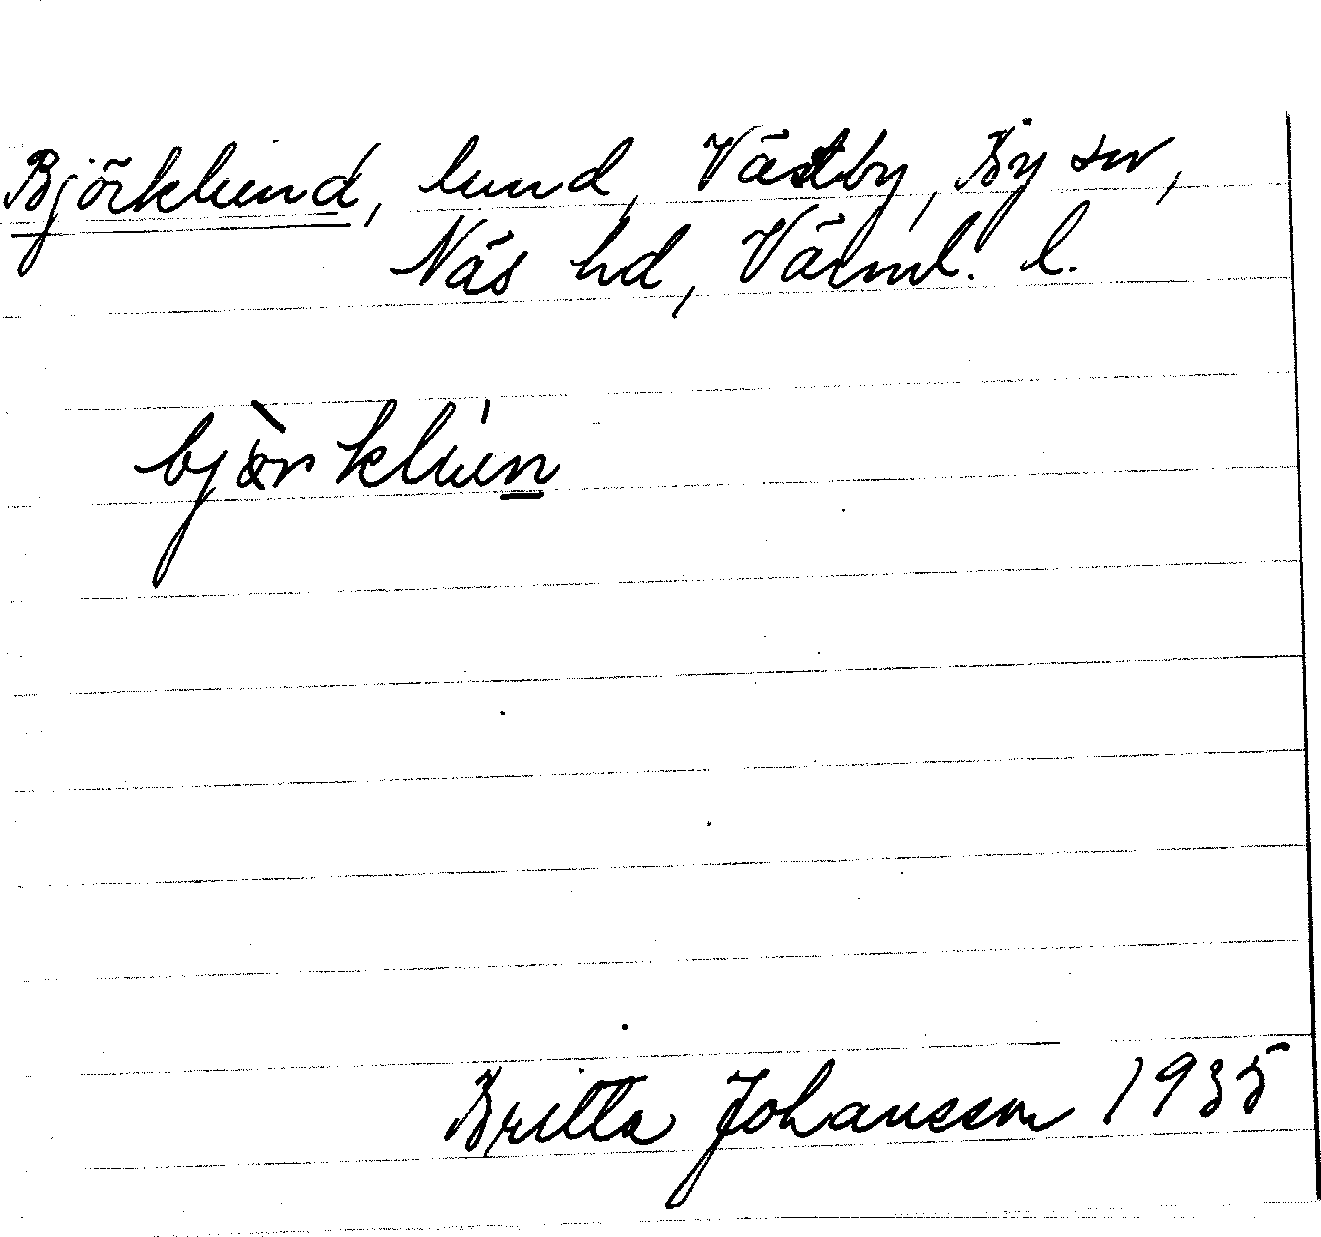 Björklund, lund, Västby, By sn,
Näs hd, Värml. l.
bjö̀rklún
Britta Johansson 1935